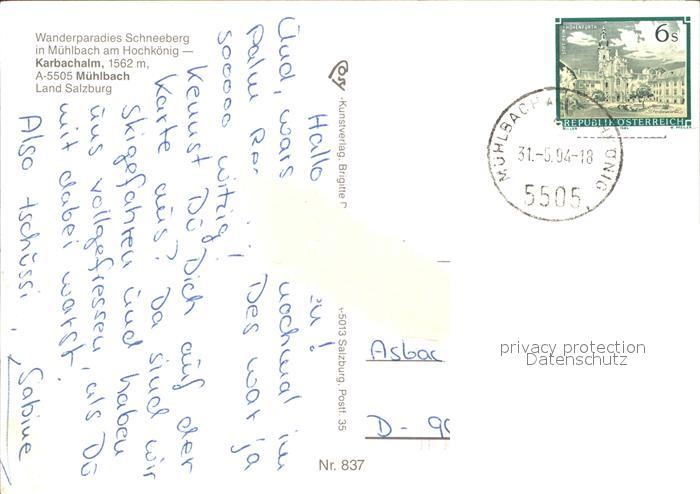 Wanderparadies Schneeberg
in Mühlbach am Hochkönig —
Karbachalm, 1562 m,
A-5505 Mühlbach
Land Salzburg
Hallo
Und, wars nochmal im
Palm Des war ja
sooooo witzig!
Kennst Du Dich auf der
Karte aus? Da sind wir
Skigefahren und haben
uns vollgefressen, als Du
mit dabei warst.
Also tschüssi, Sabine
-Kunstverlag, Brigitte
-5013 Salzburg, Postf. 35
Nr. 837
STIFT REIN-HOHENFURTH
6s
REPUBLIK ÖSTERREICH
MÜHLBACH A. HOCHKÖNIG
31.-5.94-18
5505
Asbac
D-90
privacy protection
Datenschutz